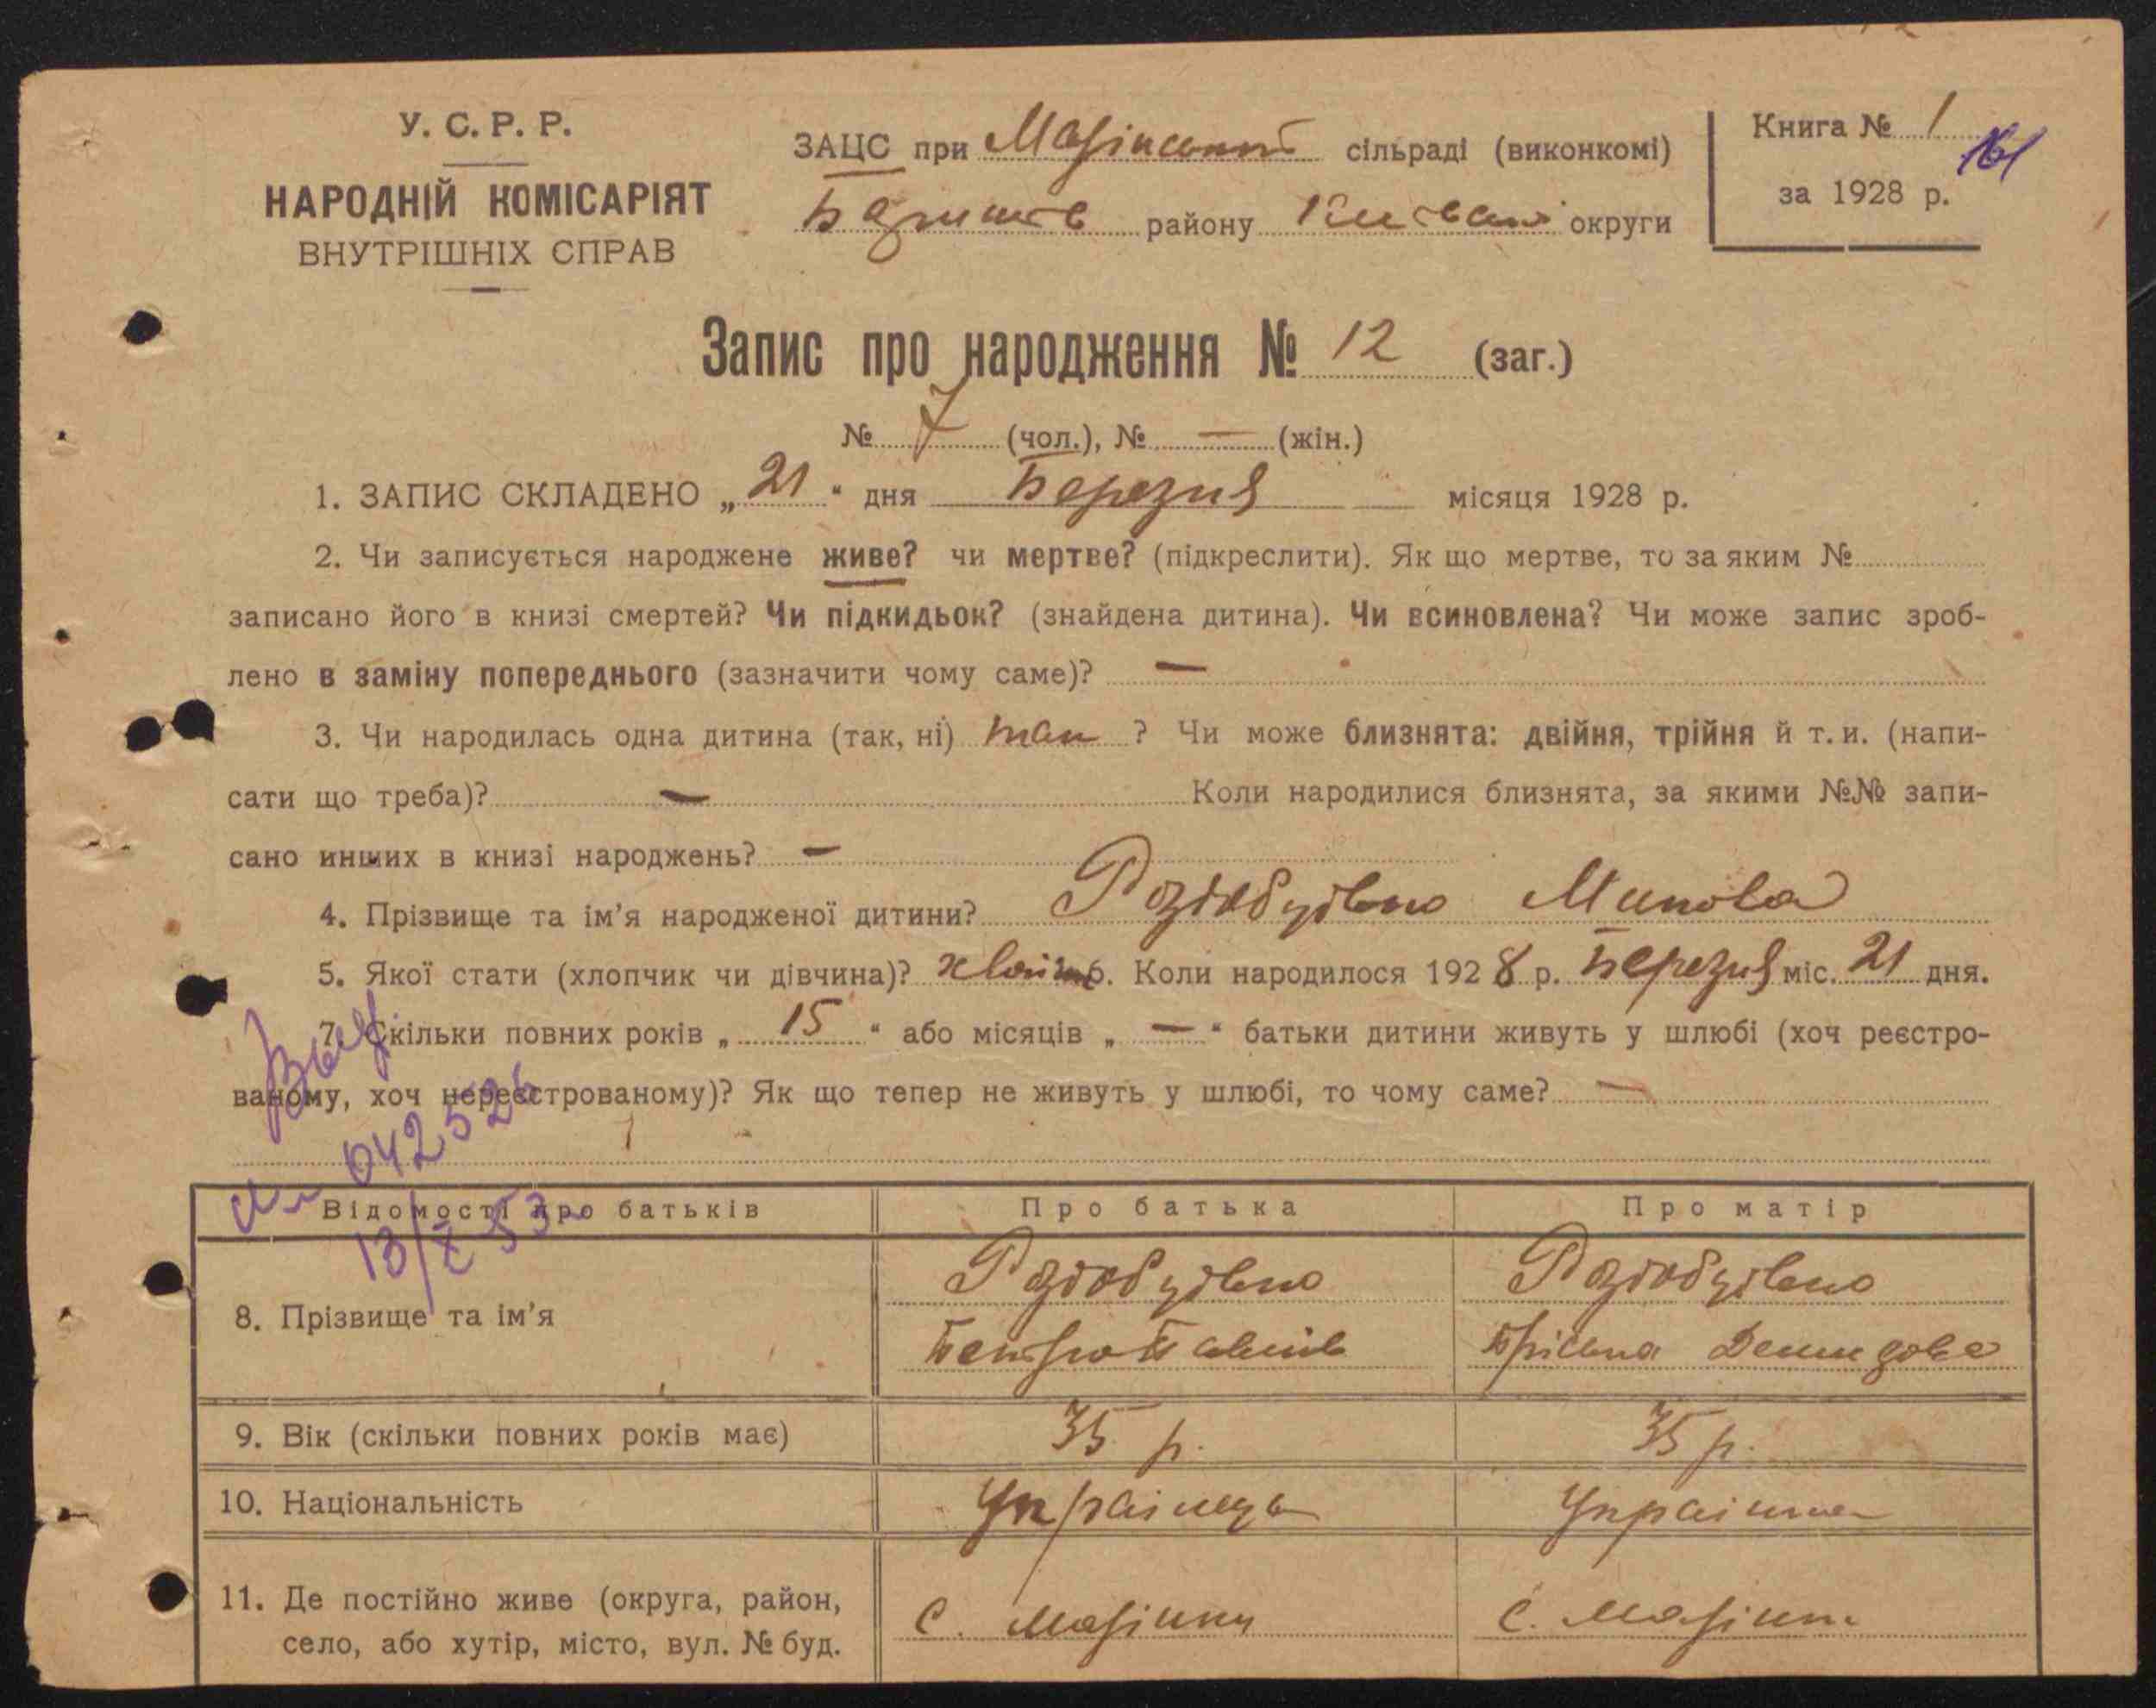 У. С. Р. Р.
НАРОДНІЙ КОМІСАРІЯТ
ВНУТРІШНІХ СПРАВ
ЗАЦС при сільраді (виконкомі)
району округи
Книга № 1
161
за 1928 р.
Запис про народження № 12 (заг.)
№ 7 (чол.), № — (жін.)
1. ЗАПИС СКЛАДЕНО „ 21 “ дня Березня місяця 1928 р.
2. Чи записується народжене живе? чи мертве? (підкреслити). Як що мертве, то за яким №
записано його в книзі смертей? Чи підкидьок? (знайдена дитина). Чи всиновлена? Чи може запис зроб-
лено в заміну попереднього (зазначити чому саме)? —
3. Чи народилась одна дитина (так, ні) так ? Чи може близнята: двійня, трійня й т. и. (напи-
сати що треба)? — Коли народилися близнята, за якими №№ запи-
сано инших в книзі народжень? —
4. Прізвище та ім’я народженої дитини? Микола
5. Якої стати (хлопчик чи дівчина)? 6. Коли народилося 1928 р. Березня міс. 21 дня.
7. Скільки повних років „ 15 “ або місяців „ — “ батьки дитини живуть у шлюбі (хоч реєстро-
ваному, хоч нереєстрованому)? Як що тепер не живуть у шлюбі, то чому саме? —
042526
Відомості про батьків Про батька Про матір
13/X 53
8. Прізвище та ім’я Петро
9. Вік (скільки повних років має) 35 р. 35 р.
10. Національність Українець Українка
11. Де постійно живе (округа, район,
село, або хутір, місто, вул. № буд. с. с.